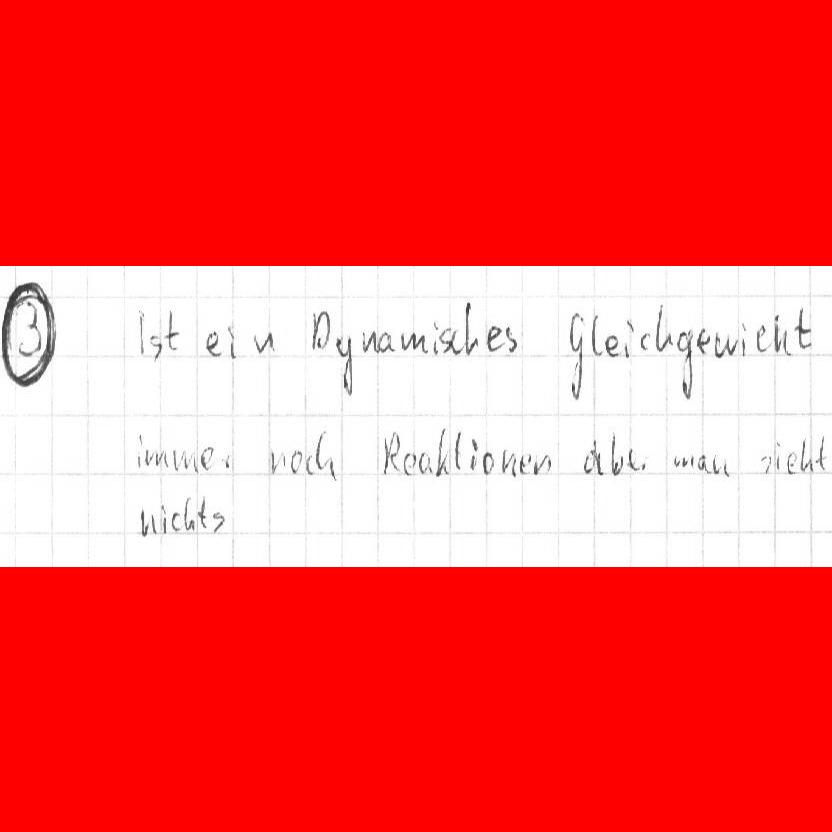 3 Ist ein Dynamisches Gleichgewicht
immer noch Reaktionen aber man sieht
nichts